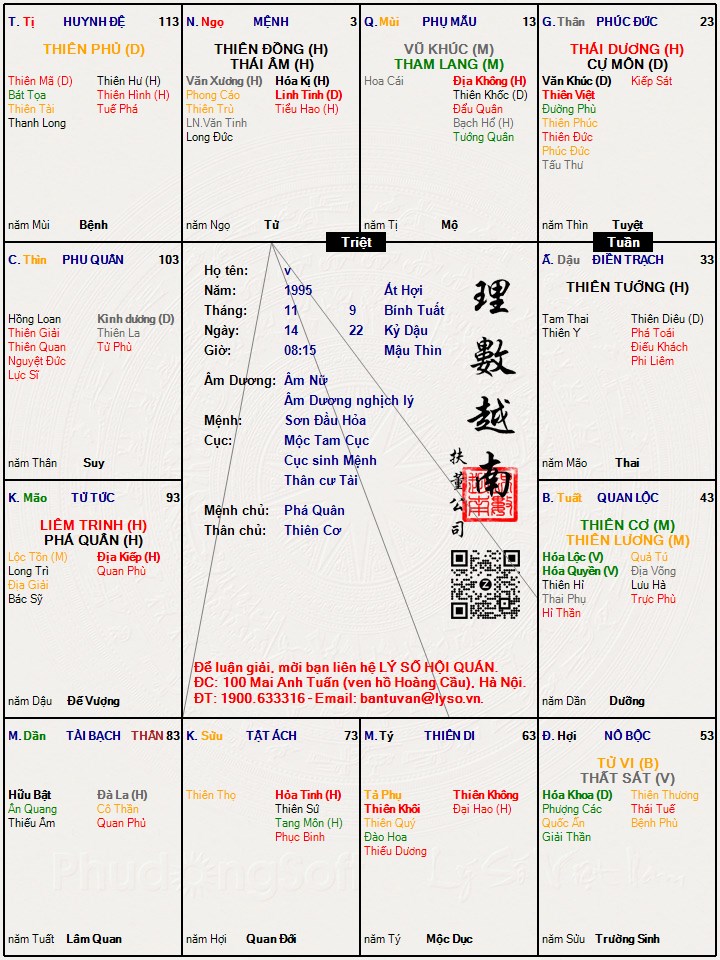 T. Tị HUYNH ĐỆ 113
THIÊN PHỦ (D)
Thiên Mã (D) Thiên Hư (H)
Bát Tọa Thiên Hình (H)
Thiên Tài Tuế Phá
Thanh Long
năm Mùi Bệnh
N. Ngọ MỆNH 3
THIÊN ĐỒNG (H)
THÁI ÂM (H)
Văn Xương (H) Hóa Kị (H)
Phong Cáo Linh Tinh (D)
Thiên Trù Tiểu Hao (H)
LN.Văn Tinh
Long Đức
năm Ngọ Tử
Q. Mùi PHỤ MẪU 13
VŨ KHÚC (M)
THAM LANG (M)
Hoa Cái Địa Không (H)
Thiên Khốc (D)
Đẩu Quân
Bạch Hổ (H)
Tướng Quân
năm Tị Mộ
G. Thân PHÚC ĐỨC 23
THÁI DƯƠNG (H)
CỰ MÔN (D)
Văn Khúc (D) Kiếp Sát
Thiên Việt
Đường Phù
Thiên Phúc
Thiên Đức
Phúc Đức
Tấu Thư
năm Thìn Tuyệt
Triệt
Tuần
C. Thìn PHU QUÂN 103
Hồng Loan Kình dương (D)
Thiên Giải Thiên La
Thiên Quan Tử Phù
Nguyệt Đức
Lực Sĩ
năm Thân Suy
Họ tên: v
Năm: 1995 Ất Hợi
Tháng: 11 9 Bính Tuất
Ngày: 14 22 Kỷ Dậu
Giờ: 08:15 Mậu Thìn
Âm Dương: Âm Nữ
Âm Dương nghịch lý
Mệnh: Sơn Đầu Hỏa
Cục: Mộc Tam Cục
Cục sinh Mệnh
Thân cư Tài
Mệnh chủ: Phá Quân
Thân chủ: Thiên Cơ
理數越南
扶董公司
Để luận giải, mời bạn liên hệ LÝ SỐ HỘI QUÁN.
ĐC: 100 Mai Anh Tuấn (ven hồ Hoàng Cầu), Hà Nội.
ĐT: 1900.633316 - Email: bantuvan@lyso.vn.
Ấ. Dậu ĐIỀN TRẠCH 33
THIÊN TƯỚNG (H)
Tam Thai Thiên Diêu (D)
Thiên Y Phá Toái
Điếu Khách
Phi Liêm
năm Mão Thai
K. Mão TỬ TỨC 93
LIÊM TRINH (H)
PHÁ QUÂN (H)
Lộc Tồn (M) Địa Kiếp (H)
Long Trì Quan Phù
Địa Giải
Bác Sỹ
năm Dậu Đế Vượng
B. Tuất QUAN LỘC 43
THIÊN CƠ (M)
THIÊN LƯƠNG (M)
Hóa Lộc (V) Quả Tú
Hóa Quyền (V) Địa Võng
Thiên Hỉ Lưu Hà
Thai Phụ Trực Phù
Hỉ Thần
năm Dần Dưỡng
M. Dần TÀI BẠCH THÂN 83
Hữu Bật Đà La (H)
Ân Quang Cô Thần
Thiếu Âm Quan Phủ
năm Tuất Lâm Quan
K. Sửu TẬT ÁCH 73
Thiên Thọ Hỏa Tinh (H)
Thiên Sứ
Tang Môn (H)
Phục Binh
năm Hợi Quan Đới
M. Tý THIÊN DI 63
Tả Phụ Thiên Không
Thiên Khôi Đại Hao (H)
Thiên Quý
Đào Hoa
Thiếu Dương
năm Tý Mộc Dục
Đ. Hợi NÔ BỘC 53
TỬ VI (B)
THẤT SÁT (V)
Hóa Khoa (D) Thiên Thương
Phượng Các Thái Tuế
Quốc Ấn Bệnh Phù
Giải Thần
năm Sửu Trường Sinh